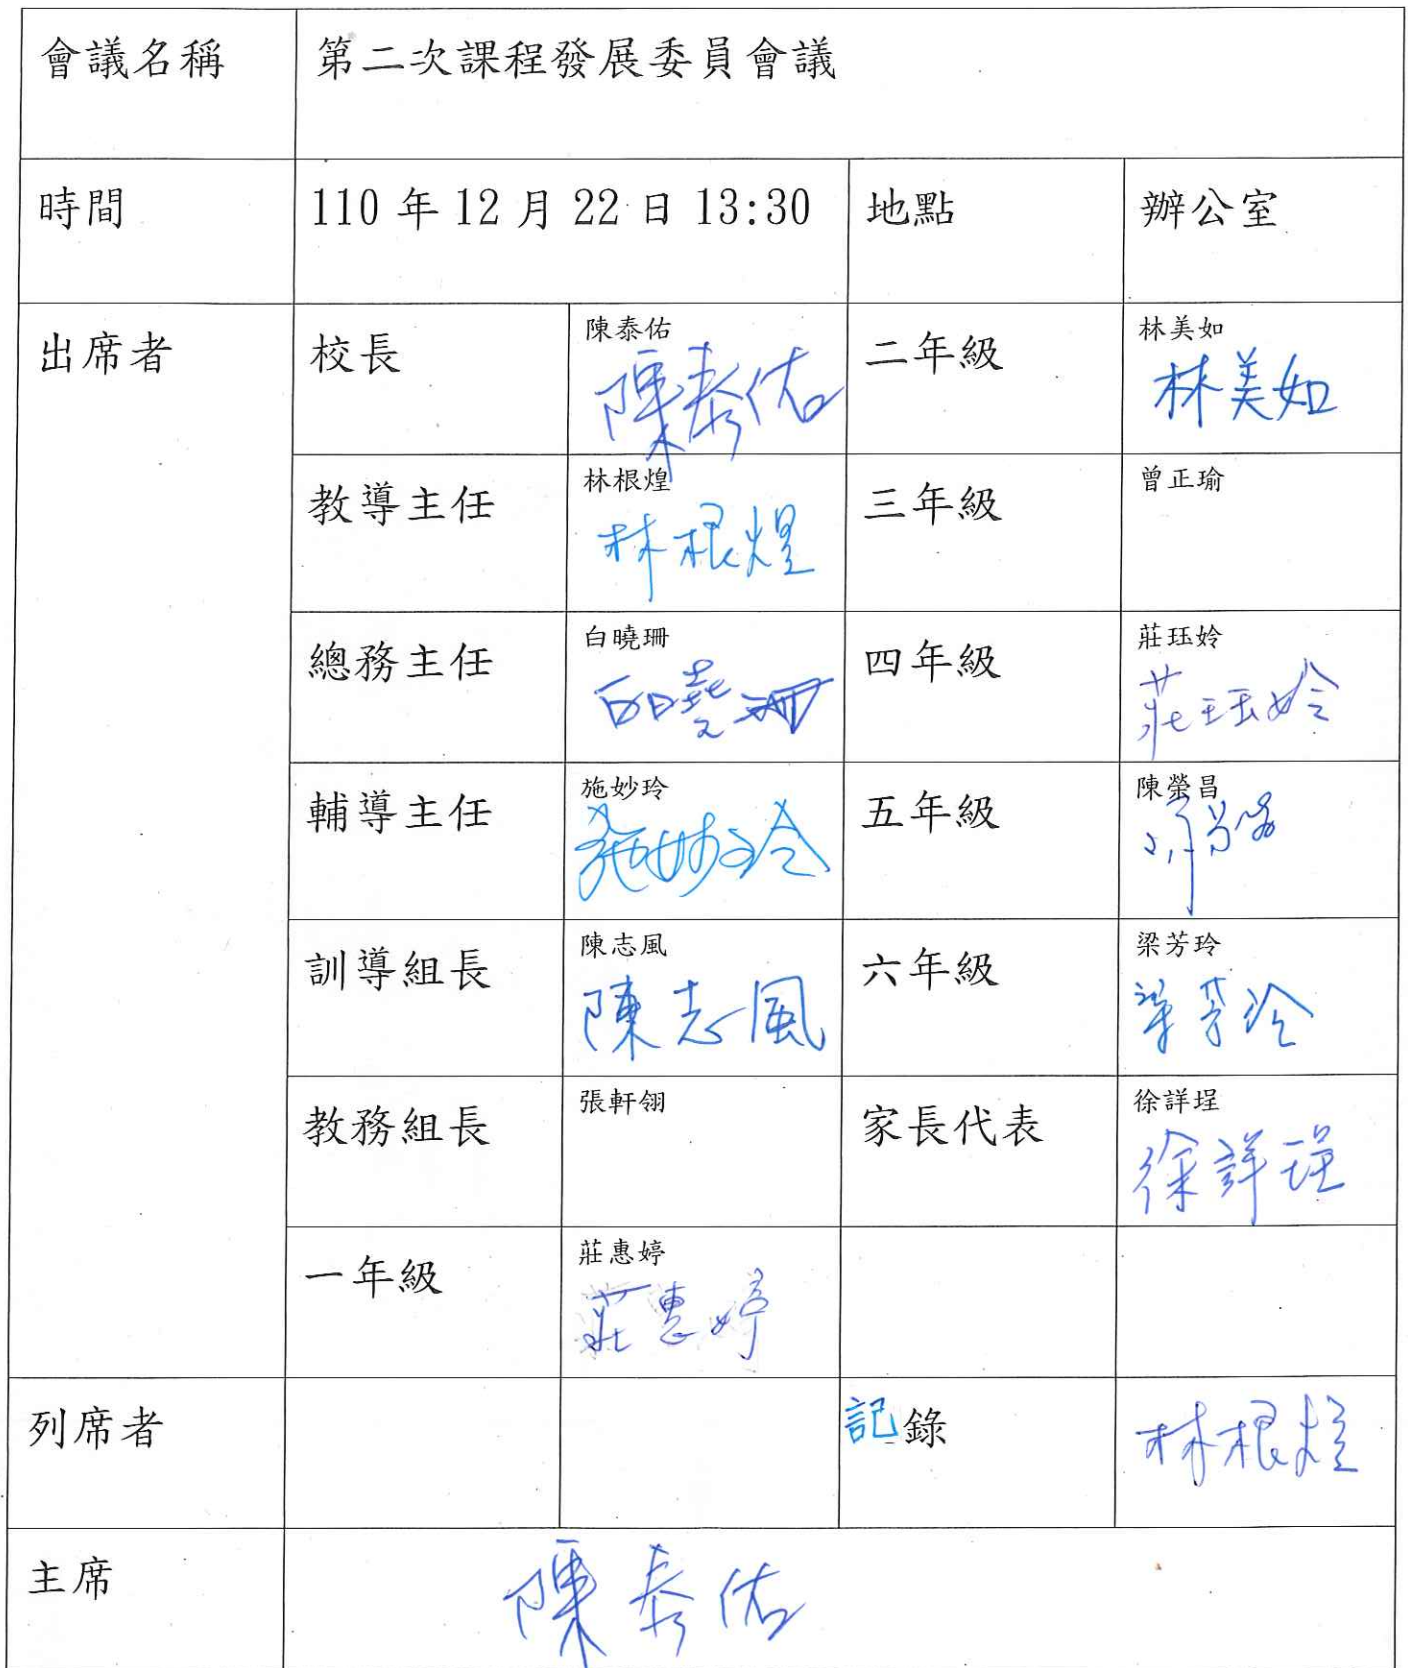 會議名稱 第二次課程發展委員會議
時間 110 年 12 月 22 日 13:30 地點 辦公室
出席者 校長 陳泰佑 二年級 林美如
陳泰佑 林美如
教導主任 林根煌 三年級 曾正瑜
林根煌
總務主任 白曉珊 四年級 莊珏姈
白曉珊 莊珏姈
輔導主任 施妙玲 五年級 陳螢昌
施妙玲
訓導組長 陳志風 六年級 梁芳玲
陳志風 梁芳玲
教務組長 張軒翎 家長代表 徐詳埕
徐詳埕
一年級 莊惠婷
莊惠婷
列席者 記錄 林根煌
主席 陳泰佑